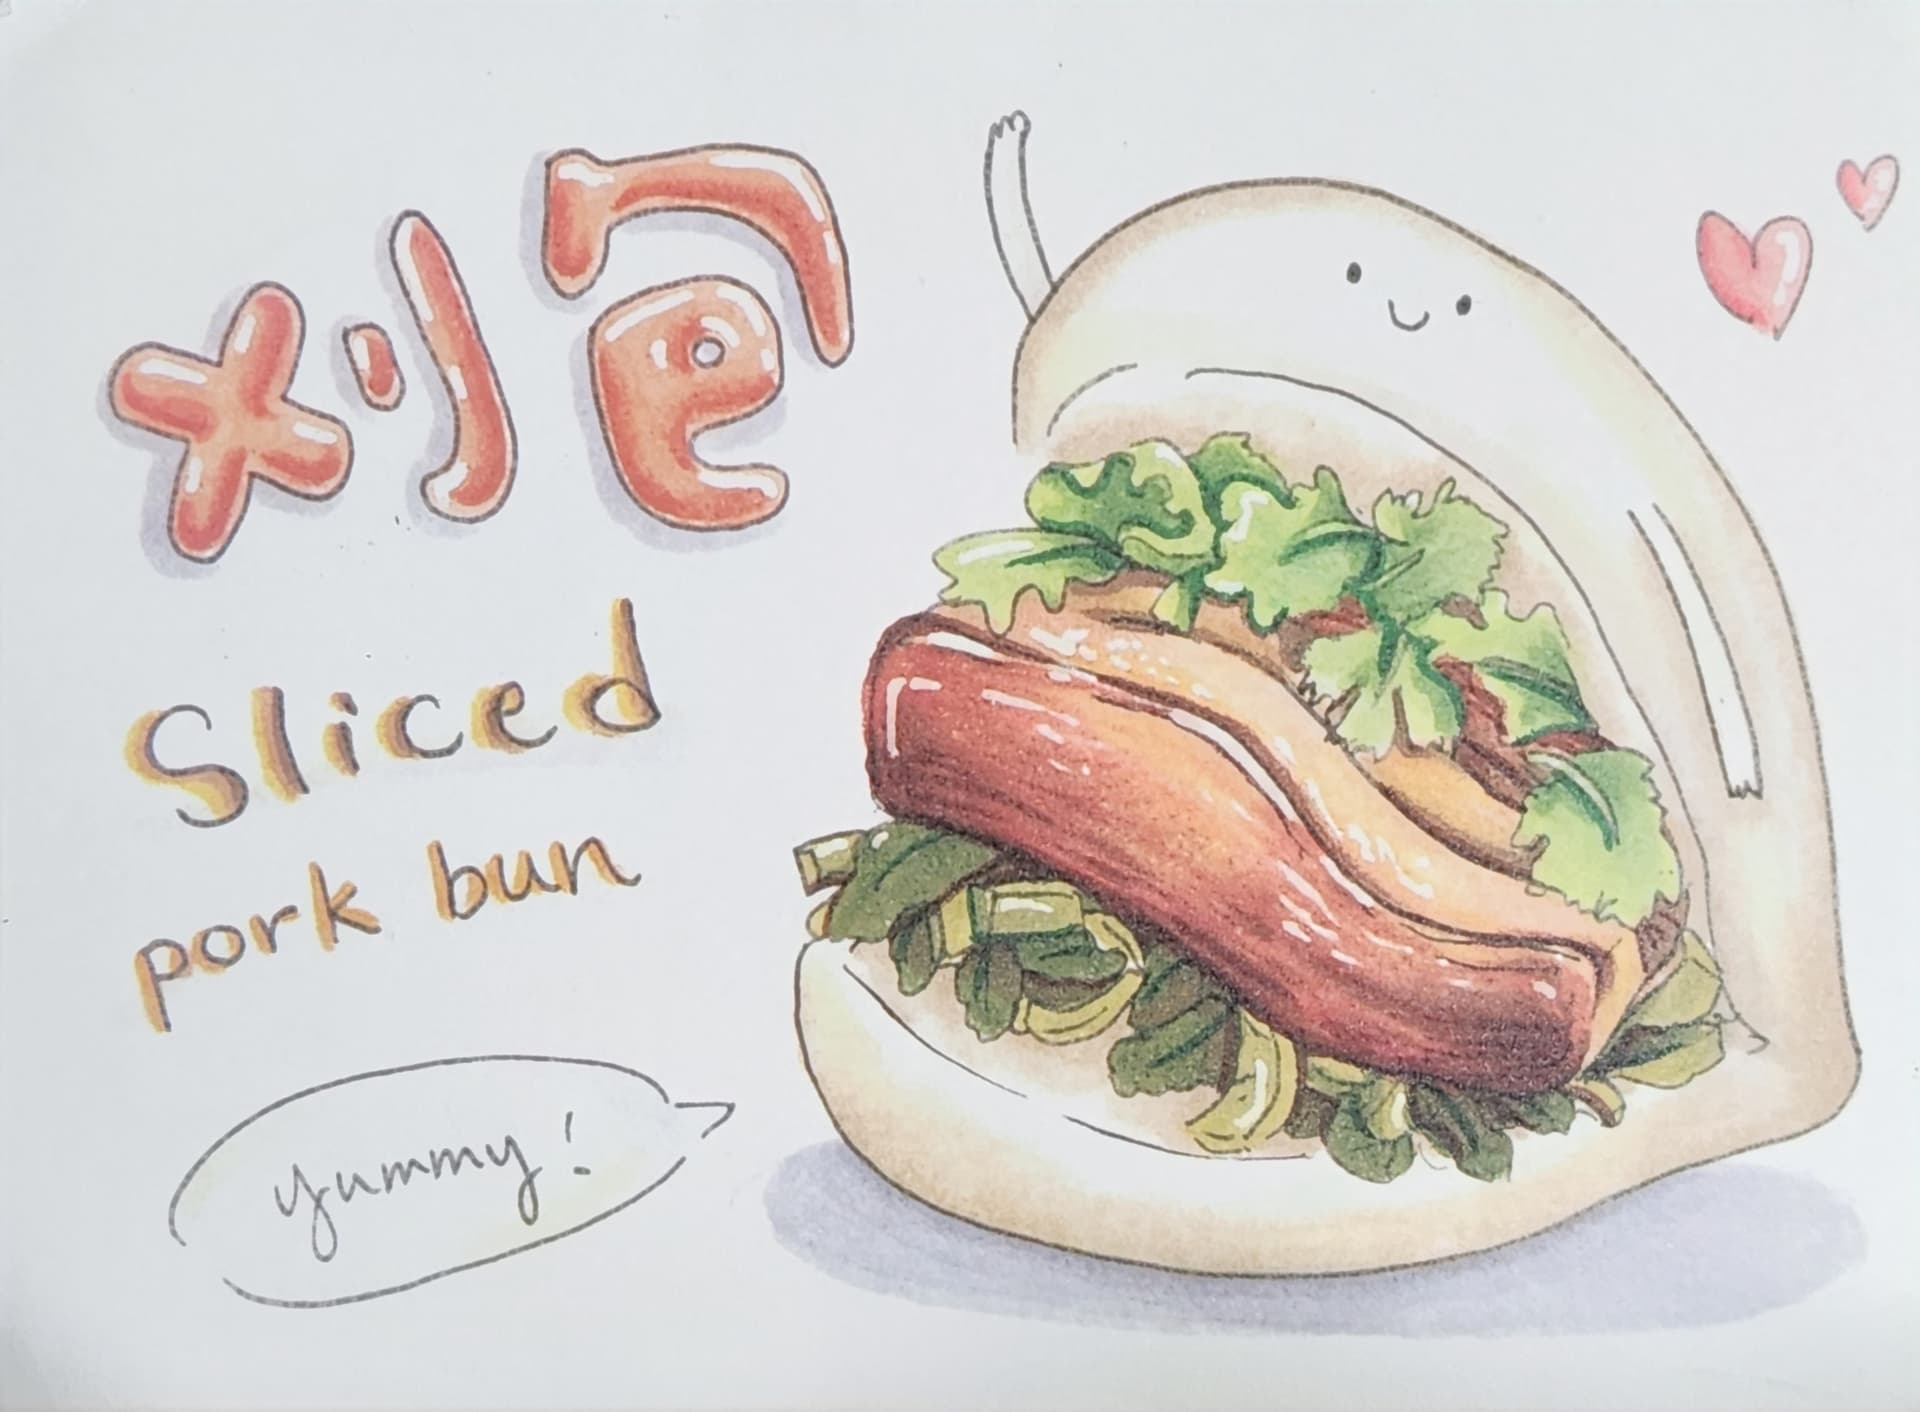 刈包
Sliced
pork bun
yummy!